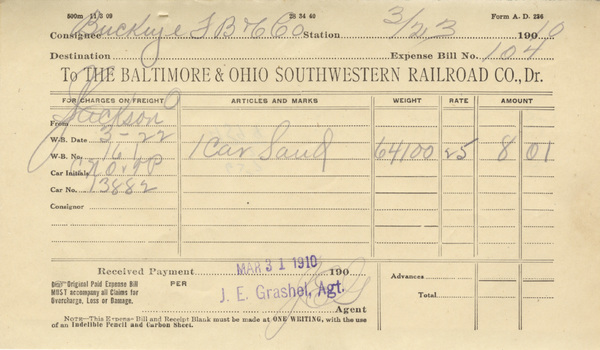 500m 11 9 09 28 34 40 Form A. D. 226
Consignee Buckeye F B & C Co Station 3/23 1900 10
Destination Expense Bill No. 104
To THE BALTIMORE & OHIO SOUTHWESTERN RAILROAD CO., Dr.
FOR CHARGES ON FREIGHT ARTICLES AND MARKS WEIGHT RATE AMOUNT
From Jackson O
W-B. Date 3-22
W-B. No. 161 1 Car Sand 64100 25 8 01
Car Initials
Car No. 13882
Consignor
Received Payment MAR 31 1910 190 Advances
Original Paid Expense Bill PER
MUST accompany all Claims for J. E. Grashel, Agt. Total
Overcharge, Loss or Damage. Agent
NOTE—This Expense Bill and Receipt Blank must be made at ONE WRITING, with the use
of an Indelible Pencil and Carbon Sheet.